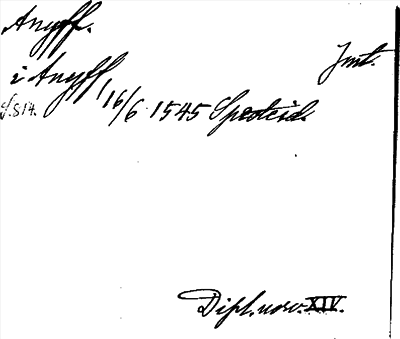 Anyff.
Jmt.
i Anyff 16/6 1545
S. 814.
Dipl. norv. XIV.